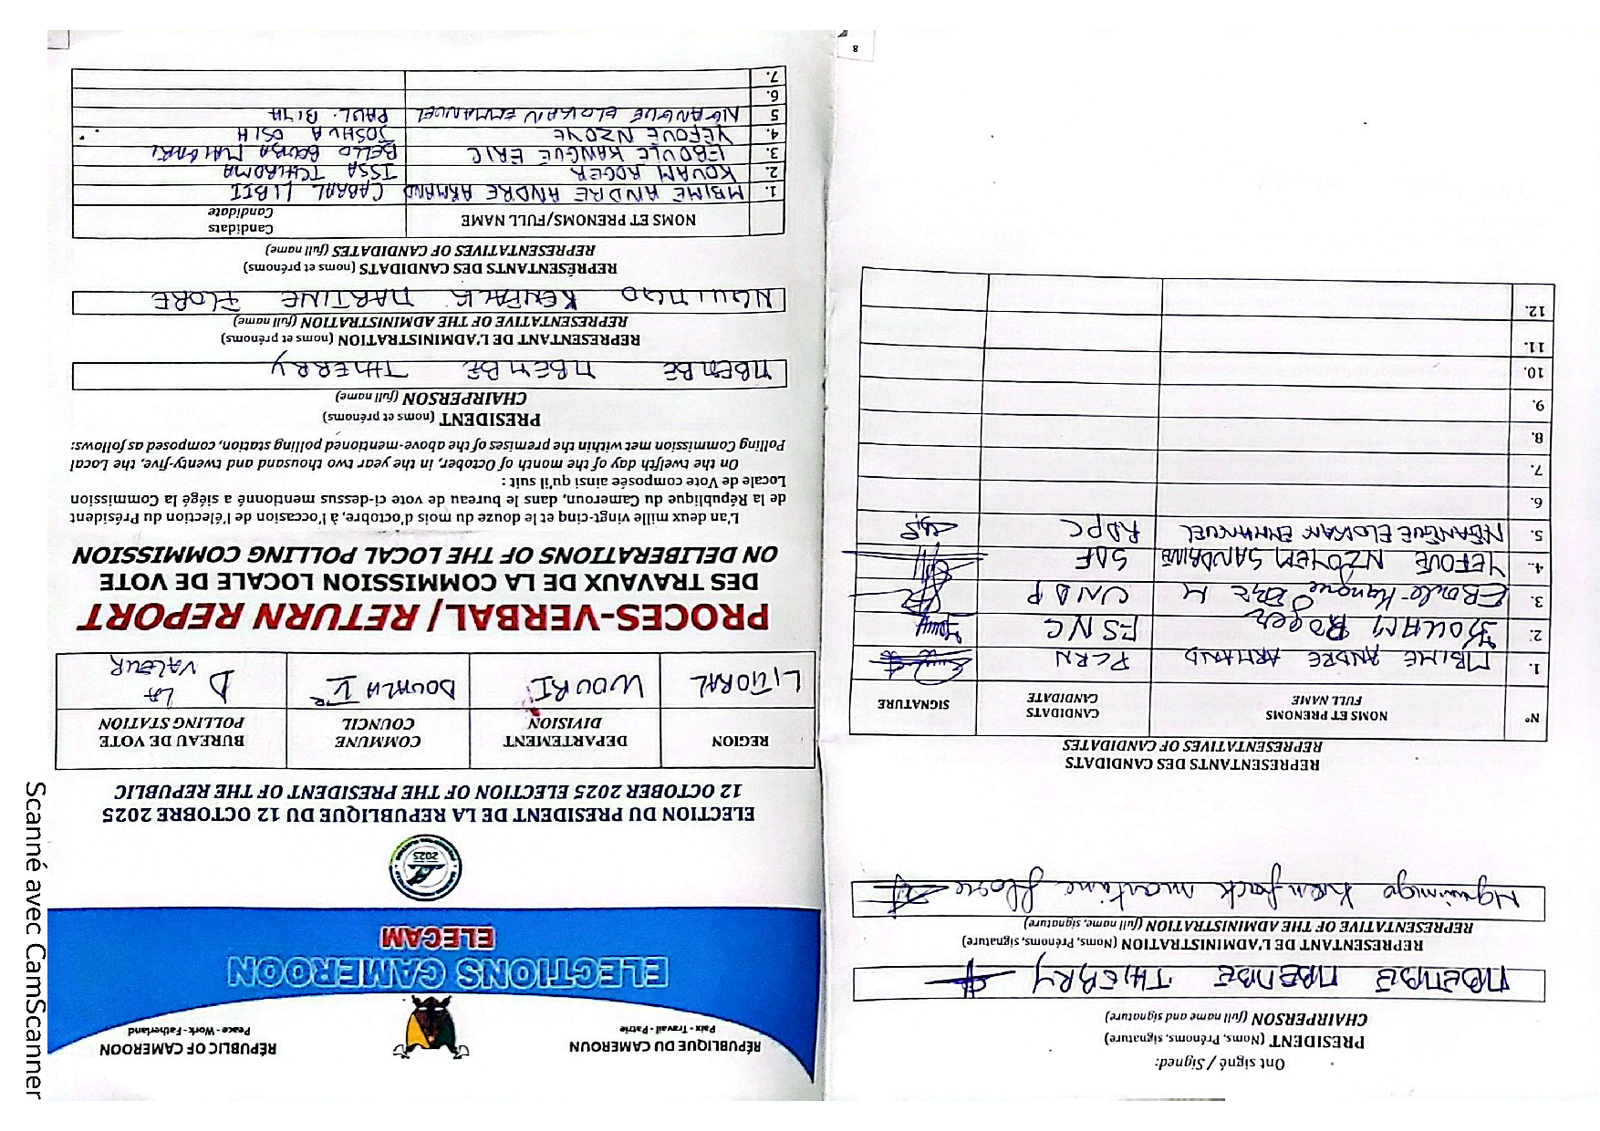 RÉPUBLIQUE DU CAMEROUN
Paix - Travail - Patrie
RÉPUBLIC OF CAMEROON
Peace - Work - Fatherland
ELECTIONS CAMEROON
ELECAM
2025
ELECTION DU PRESIDENT DE LA REPUBLIQUE DU 12 OCTOBRE 2025
12 OCTOBER 2025 ELECTION OF THE PRESIDENT OF THE REPUBLIC
REGION
DEPARTEMENT
DIVISION
COMMUNE
COUNCIL
BUREAU DE VOTE
POLLING STATION
LITTORAL
WOURI
DOUALA Ve
LA VALEUR
D
PROCES-VERBAL/ RETURN REPORT
DES TRAVAUX DE LA COMMISSION LOCALE DE VOTE
ON DELIBERATIONS OF THE LOCAL POLLING COMMISSION
L'an deux mille vingt-cinq et le douze du mois d'octobre, à l'occasion de l'élection du Président
de la République du Cameroun, dans le bureau de vote ci-dessus mentionné a siégé la Commission
Locale de Vote composée ainsi qu'il suit :
On the twelfth day of the month of October, in the year two thousand and twenty-five, the Local
Polling Commission met within the premises of the above-mentioned polling station, composed as follows:
PRESIDENT (noms et prénoms)
CHAIRPERSON (full name)
MBEMBE MBEMBE THIERRY
REPRÉSENTANT DE L'ADMINISTRATION (noms et prénoms)
REPRESENTATIVE OF THE ADMINISTRATION (full name)
NGUIMGO KENFACK MARTINE FLORE
REPRÉSENTANTS DES CANDIDATS (noms et prénoms)
REPRESENTATIVES OF CANDIDATES (full name)
NOMS ET PRENOMS/FULL NAME
Candidats
Candidate
1. MBIME ANDRE ANDRE ARMAND CABRAL LIBII
2. KOUAM ROGER ISSA TCHIROMA
3. EBOULE KANGUE ERIC BELLO BOUBA MAIGARI
4. YEFOUE NZOYE JOSHUA OSIH
5 NGANGUE ELOKAN EMMANUEL PAUL BIYA
6.
7.
Ont signé / Signed:
PRESIDENT (Noms, Prénoms, signature)
CHAIRPERSON (full name and signature)
MBEMBE MBEMBE THIERRY
REPRESENTANT DE L'ADMINISTRATION (Noms, Prénoms, signature)
REPRESENTATIVE OF THE ADMINISTRATION (full name, signature)
Nguimgo Kenfack martine flore
REPRESENTANTS DES CANDIDATS
REPRESENTATIVES OF CANDIDATES
N°
NOMS ET PRENOMS
FULL NAME
CANDIDATS
CANDIDATE
SIGNATURE
1. MBIME ANDRE ARMAND PCRN
2. KOUAM Roger FSNC
3. EBoule Kangue UNDP
4. YEFOUE NZOYEM SANDRINE SDF
5. NGANGUE ELOKAN EMMANUEL RDPC
6.
7.
8.
9.
10.
11.
12.
8
Scanné avec CamScanner